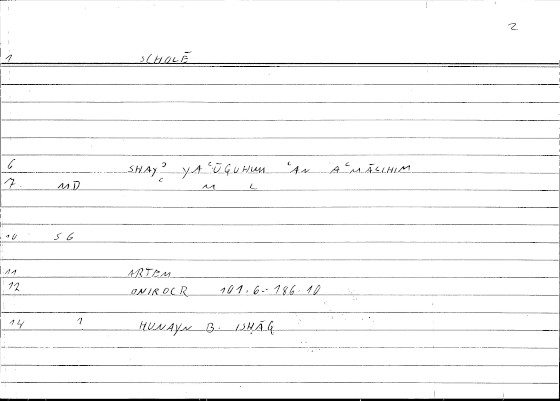 2
1 SCHOLĒ
6 SHAYʾ YAʿŪQUHUM ʿAN AʿMĀLIHIM
7 MD ʿ M L
10 SG
11 ARTEM
12 ONIROCR 101.6-186.10
14 1 ḤUNAYN B. ISḤĀQ